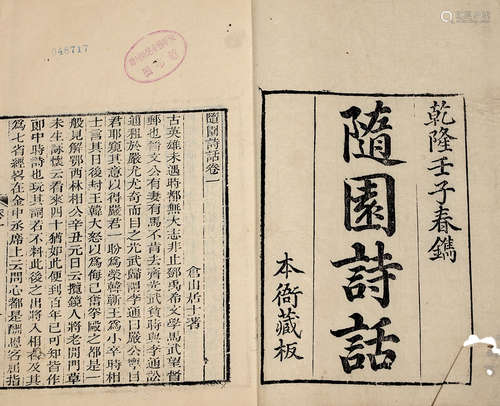 乾隆壬子春鐫
隨園詩話
本衙藏板
048717
隨園詩話卷一
倉山居士著
古英雄未遇時都無大志非止鄧禹希文學馬武望督
郵也晉文公有妻有馬不肯去齊光武貧時與李通訟
逋租於嚴尤尤奇而目之光武歸謂李通曰嚴公寧目
君耶窺其意以得嚴君一盼為榮韓蘄王為小卒時相
士言其日後封王韓大怒以為侮己奮拳毆之都是一
般見解鄂西林相公辛丑元日云攬鏡人將老開門草
未生詠懷云看來四十猶如此便到百年已可知皆作
郎中時詩也玩其詞若不料此後之出將入相者及其
為七省經畧在金中丞席上云問心都是酬恩客屈指